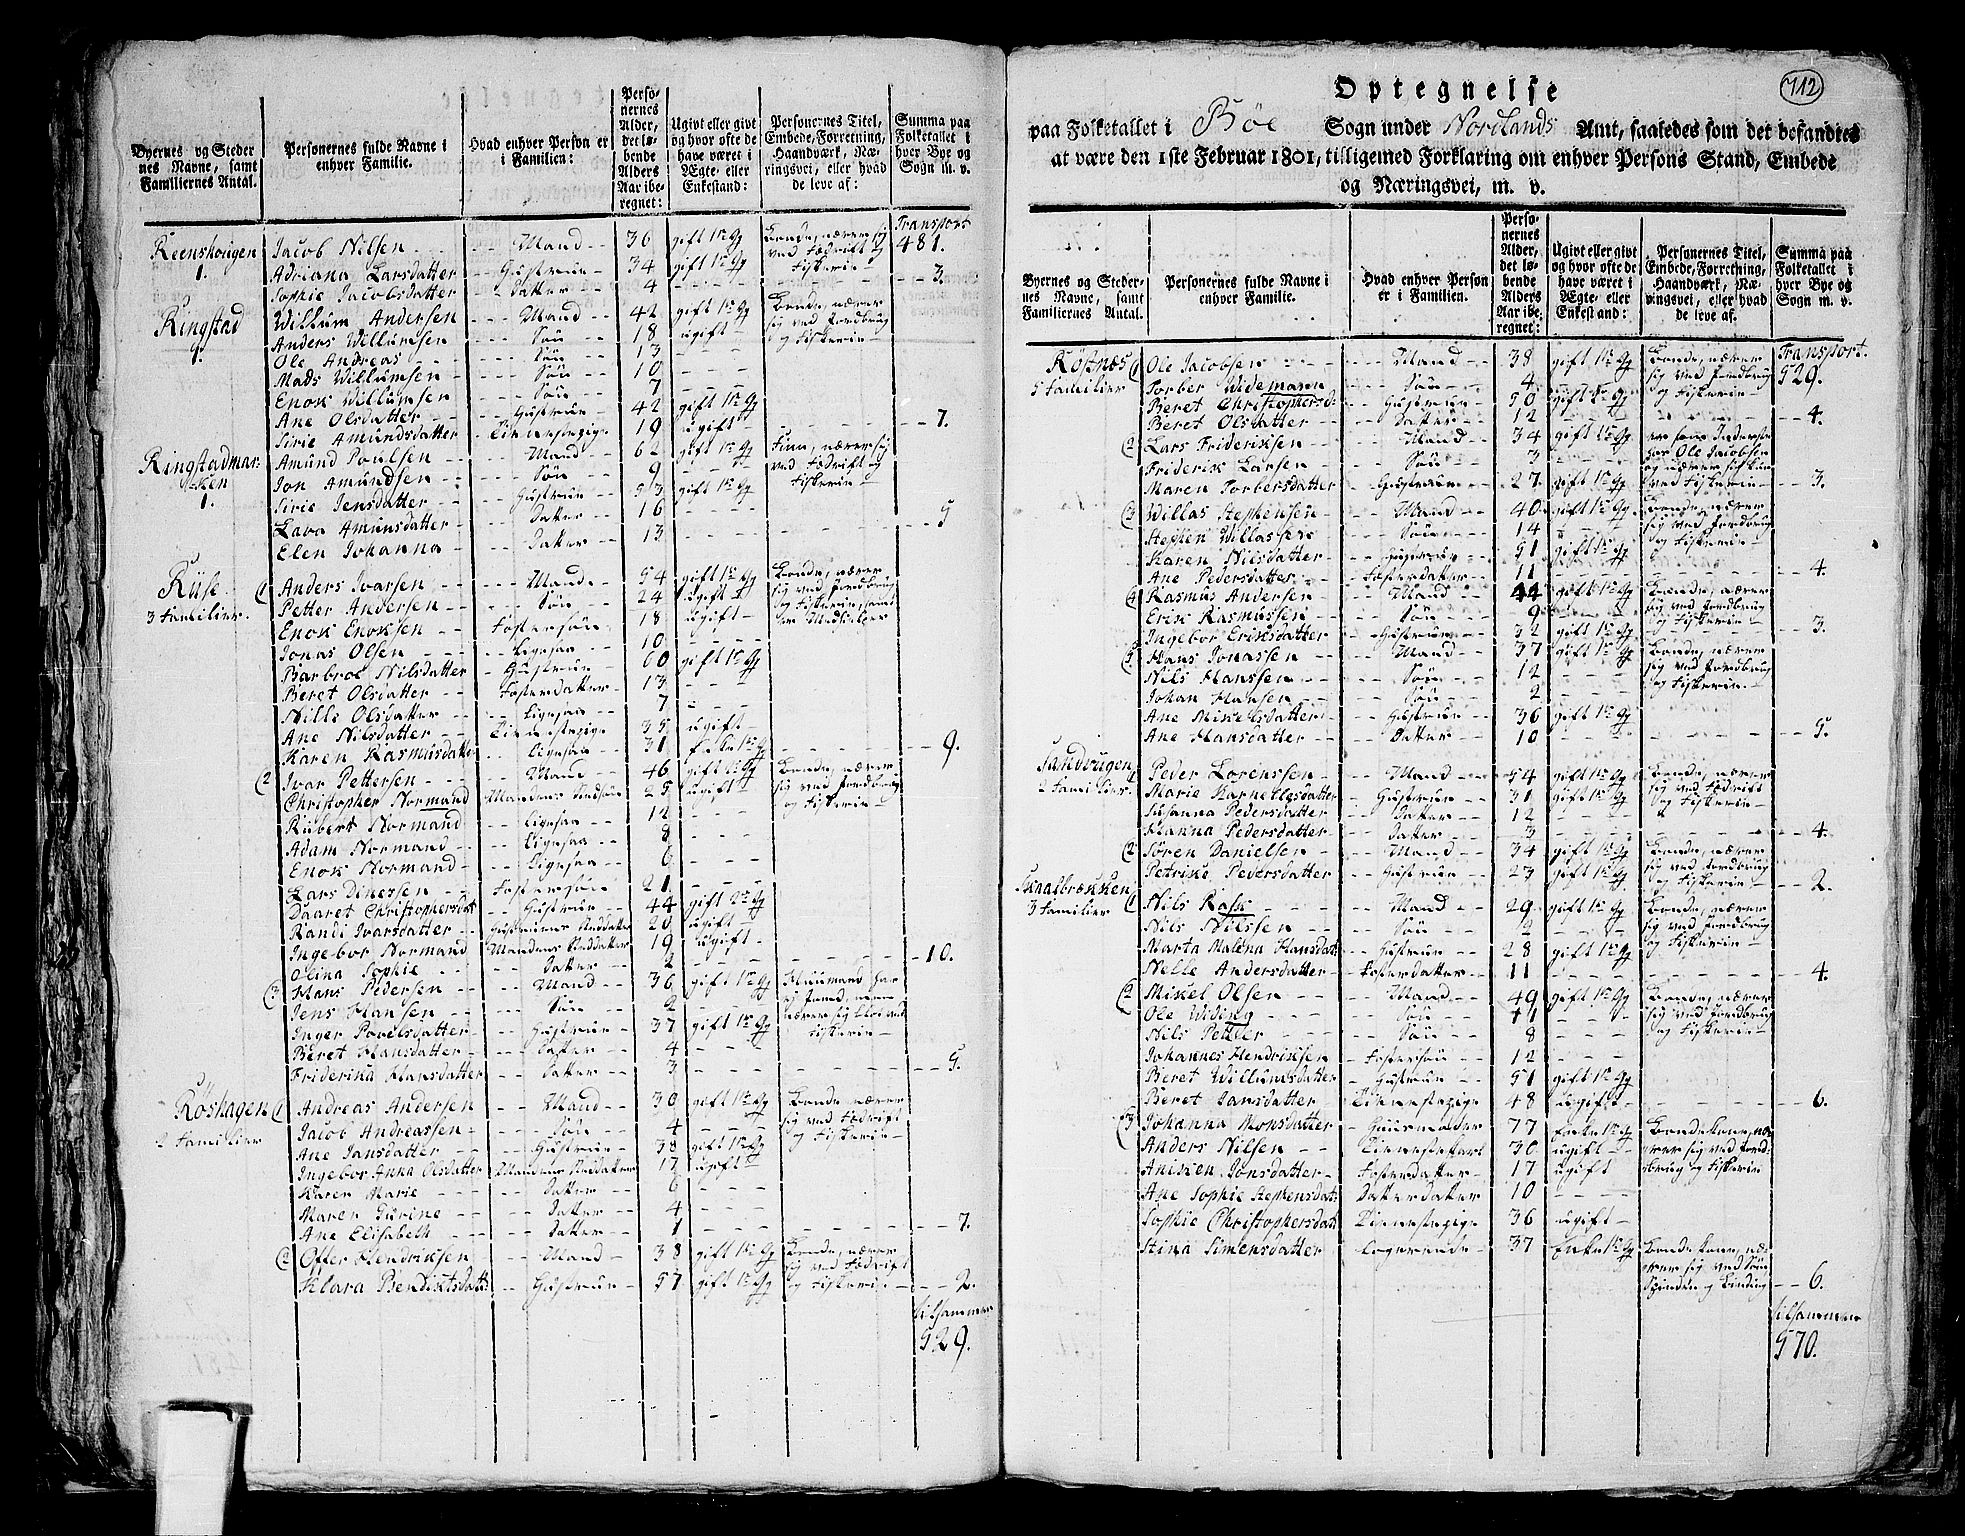 Byernes og Steder nes Navne, samt Familiernes Antal.
Personernes fulde Navne i enhver Familie.
Hvad enhver Person er i Familien:
Personernes Alder, det løbende Alders Aar iberegnet:
Ugivt eller givt og hvor ofte de have været i Ægte- eller Enkestand:
Personernes Titel, Embede, Forretning, Haandværk, Næringsvei, eller hvad de leve af:
Summa paa Folketallet i hver Bye og Sogn m. v.
Transport 481.
Reenskougen 1. Jacob Nilsen - - Mand - - 36 gift 1te Gg Bonde, nærer sig ved Fædrift og Fiskerie
Adriana Larsdatter - - Hustrue - 34 gift 1te Gg
Sophie Jacobsdatter - - Datter - 4 - - - 3.
Ringstad 1. Willum Andersen - - Mand - - 42 gift 1te Gg Bonde, nærer sig ved Jordbrug og Fiskerie
Anders Willumsen - - Søn - - 18 ugift
Ole Andreas - - Søn - - 13
Mads Willumsen - - Søn - - 10
Enok Willumsen - - Søn - - 7
Ane Olsdatter - - Hustrue - - 42 gift 1te Gg
Sirie Amundsdatter Tienestepige 19 ugift - - 7.
Ringstadmarken 1. Amund Poulsen - - Mand - - 62 gift 1te Gg Finn, nærer sig ved Fædrift og Fiskerie
Jon Amundsen - - Søn - - 9
Sirie Jensdatter - - Hustrue - 53 gift 1te Gg
Lava Amunsdatter - - Datter - - 16
Elen Johanna - - Datter - - 13 - - 5
Rüse 3 Familier. (1 Anders Ivarsen - - Mand - - 54 gift 1te Gg Bonde, nærer sig ved Jordbrug og Fiskerie, samt er Medhielper
Petter Andersen - - Søn - - 24 ugift
Enok Enoksen - - Fostersøn 18 ugift
Jonas Olsen - - Ligesaa - - 10
Barbroe Nilsdatter - Hustrue - 60 gift 1te Gg
Beret Olsdatter - - Fosterdatter - 13
Nills Olsdatter - - Ligesaa - - 7
Ane Nilsdatter - - Tienestepige 35 ugift
Karen Rasmusdatter - - Ligesaa - - 31 Enke 1te Gg - - 9.
(2 Ivar Pettersen - - Mand - - 46 gift 2de Gg Bonde, nærer sig ved Jordbrug og Fiskerie
Christopher Normand Mandens Stedsøn 25 ugift
Rubert Normand - - Ligesaa - - 12
Adam Normand - - Ligesaa - - 8
Enok Normand - - Ligesaa - - 6
Lars Dinessen - - Fostersøn 21
Daaret Christophersdat - - Hustrue - - 44 gift 2de Gg
Randi Ivarsdatter - - Hustruens Steddatter 20 ugift
Ingebor Normand Mandens Steddatter 19 ugift
Olina Sophie - - Datter - - 2 - - 10.
(3 Hans Pedersen - - Mand - - 36 gift 1te Gg Huusmand har ej Jord, men nærer sig blot ved Fiskerie
Jens Hansen - - Søn - - 2
Inger Povelsdatter - - Hustrue - - 37 gift 1te Gg
Beret Hansdatter - - Datter - - 4
Friderika Hansdatter - - Datter - - 3 - - 5.
Röshagen 2 Familier (1 Andreas Andersen - - Mand - - 30 gift 1te Gg Bonde, nærer sig ved Fædrift og Fiskerie
Jacob Andreassen - - Søn - - 4
Ane Jansdatter - - Hustrue - - 38 gift 1te Gg
Ingebor Anna Olsdatter Mandens Stedatter 17 ugift
Karen Marie - - Datter - - 6
Maren Gurine - - Datter - - 4
Ane Elisabeth - - Datter - - 1 - - 7.
(2 Offer Hendriksen - - Mand - - 38 gift 1te Gg Bonde, nærer sig ved Fædrift og Fiskerie
Klara Bendiktsdatt: - - Hustrue - - 57 gift 1te Gg - - 2.
tilsammen 529.
712
Optegnelse
paa Folketallet i Bøe Sogn under Nordlands Amt, saaledes som det befandtes
at være den 1ste Februar 1801, tilligemed Forklaring om enhver Persons Stand, Embede
og Næringsvei, m. v.
Byernes og Stedernes Navne, samt Familiernes Antal.
Personernes fulde Navne i enhver Familie.
Hvad enhver Person er i Familien.
Personernes Alder, det løbende Alders Aar iberegnet:
Ugivt eller givt og hvor ofte de have været i Ægte- eller Enkestand:
Personernes Titel, Embede, Forretning, Haandværk, Næringsvei, eller hvad de leve af.
Summa paa Folketallet i hver Bye og Sogn m. v.
Transport. 529.
Röstnæs 5 Familier (1 Ole Jacobsen - - Mand - - 38 gift 1te Gg Bonde, nærer sig ved Jordbrug og Fiskerie
Torber Widemann - - Søn - - 4
Beret Christophersd: - - Hustrue - - 50 gift 1te Gg
Beret Olsdatter - - Datter - - 12 - - 4.
(2 Lars Frideriksen - - Mand - - 34 gift 1te Gg er som Inderste hos Ole Jacobsen og nærer sig kun ved Fiskerie
Friderik Larsen - - Søn - - 3
Maren Torbersdatter - - Hustrue - - 27 gift 1te Gg - - 3.
(3 Willas Stephensen - - Mand - - 40 gift 1te Gg Bonde, nærer sig ved Jordbrug og Fiskerie
Stephen Willassen - - Søn - - 14
Karen Nilsdatter - - Hustrue - - 51 gift 1te Gg
Ane Pedersdatter - - Fosterdatter - 11 - - 4.
(4 Rasmus Andersen - - Mand - - 44 gift 1te Gg Bonde, nærer sig ved Jordbrug og Fiskerie
Erik Rasmussen - - Søn - - 9
Ingebor Eriksdatter - - Hustrue - - 32 gift 1te Gg - - 3.
(5 Hans Jonassen - - Mand - - 37 gift 1te Gg Bonde, nærer sig ved Jordbrug og Fiskerie
Nils Hanssen - - Søn - - 12
Johan Hansen - - Søn - - 2
Ane Mikelsdatter - - Hustrue - - 36 gift 1te Gg
Ane Hansdatter - - Datter - - 10 - - 5.
Sandvugen 2 Familier. (1 Peder Lorenssen - - Mand - - 54 gift 1te Gg Bonde, nærer sig ved Fædrift og Fiskerie
Marie Karnellesdatter - - Hustrue - - 31 gift 1te Gg
Susanna Pedersdatter - - Datter - - 12
Hanna Pedersdatter - - Datter - - 3 - - 4.
(2 Søren Danielsen - - Mand - - 34 gift 1te Gg Bonde, nærer sig ved Jordbrug og Fiskerie
Petrike Pedersdatter - - Hustrue - - 23 gift 1te Gg - - 2.
Skaalbrækken 3 Familier (1 Nils Rask - - Mand - - 29 gift 1te Gg Bonde, nærer sig ved Jordbrug og Fiskerie
Nils Nilssen - - Søn - - 2
Marta Malena Hansdatt: - - Hustrue - - 28 gift 1te Gg
Nelle Andersdatter - - Fosterdatter - - 11 - - 4.
(2 Mikel Olsen - - Mand - - 49 gift 1te Gg Bonde, nærer sig ved Jordbrug og Fiskerie
Ole Widing - - Søn - - 11
Nils Petter - - Søn - - 8
Johannes Hendriksen - - Fostersøn - - 12
Beret Willumsdatter - - Hustrue - - 51 gift 1te Gg
Beret Jansdatter - - Tienestepige - 48 ugift - - 6.
(3 Johanna Monsdatter - - Huusmoder 77 Enke 1te Gg Bondekone, nærer sig ved Jordbrug og Fiskerie
Anders Nilsen - - Tienestekarl 30 ugift
Anisien Jonsdatter - - Fosterdatter - 17 ugift
Ane Sophie Stephensdatt: Datterdatter 10
Sophie Christophersdatt: Tienestepige 36 ugift
Stina Simensdatter - - Logerende - 37 Enke 1te Gg Bonde kone, nærer sig ved Søm, Spinden og Binding - - 6.
tilsammen 570.